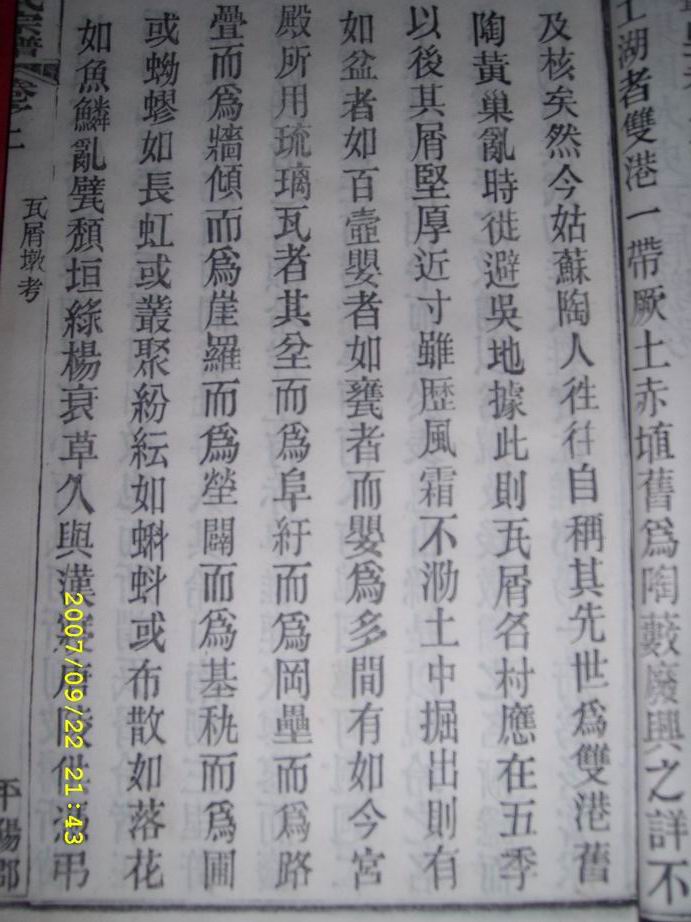 土湖者雙港一帶厥土赤埴舊爲陶藪廢興之詳不
及核矣然今姑蘇陶人徃徃自稱其先世爲雙港舊
陶黃巢亂時徙避吳地據此則瓦屑名村應在五季
以後其屑堅厚近寸雖歴風霜不泐土中掘出則有
如盆者如百壺嬰者如甕者而嬰爲多間有如今宮
殿所用琉璃瓦者其坌而爲阜紆而爲岡壘而爲路
疊而爲牆傾而爲崖羅而爲塋闢而爲基秇而爲圃
或蚴蟉如長虹或叢聚紛紜如蝌蚪或布散如落花
如魚鱗亂甓頽垣綠楊衰草久與漢寢唐陵供憑弔
瓦屑墩考
氏宗譜
卷之二
平陽郡
2007/09/22 21:43